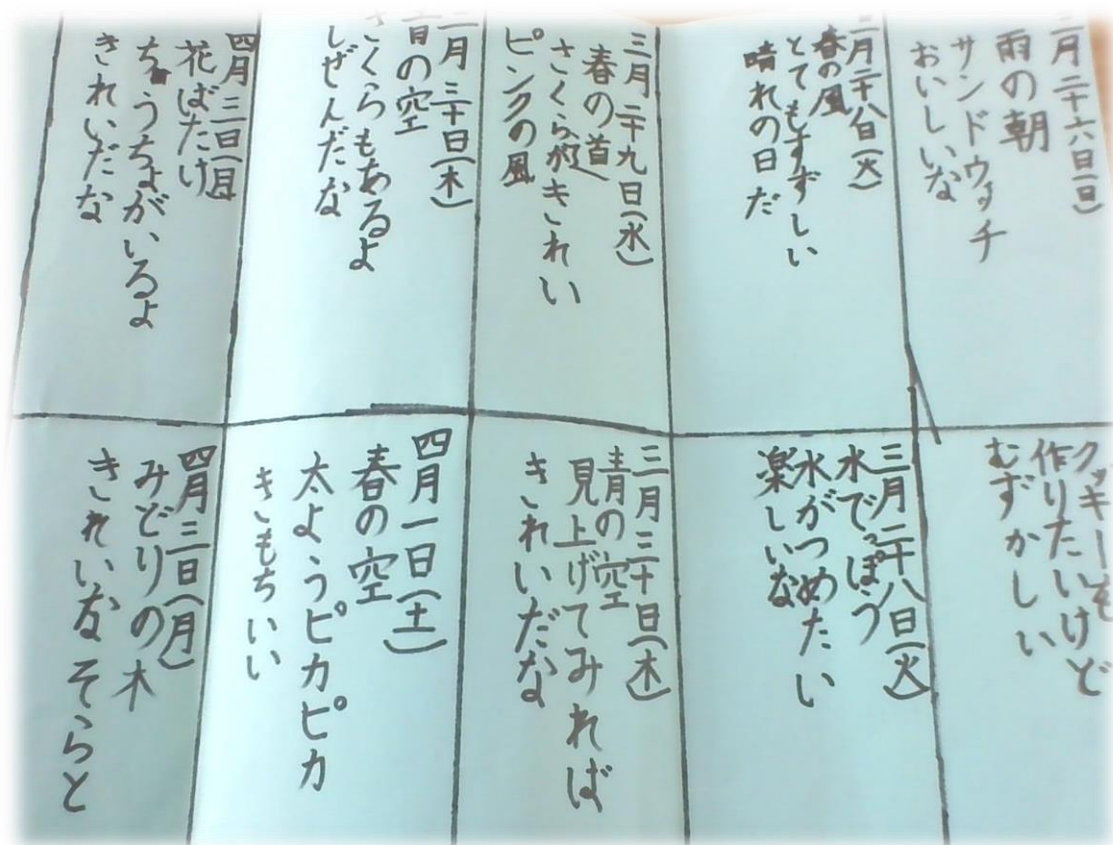 三月二十六日(日)
雨の朝
サンドウィッチ
おいしいな
三月二十八日(火)
春の風
とてもすずしい
晴れの日だ
三月二十九日(水)
春の
さくらがきれい
ピンクの風
三月三十日(木)
青の空
さくらもあるよ
しぜんだな
四月三日(月)
花ばたけ
ちょうちょがいるよ
きれいだな
クッキーを
作りたいけど
むずかしい
三月二十八日(火)
水でっぽう
水がつめたい
楽しいな
三月三十日(木)
青の空
見上げてみれば
きれいだな
四月一日(土)
春の空
太ようピカピカ
きもちいい
四月三日(月)
みどりの木
きれいなそらと